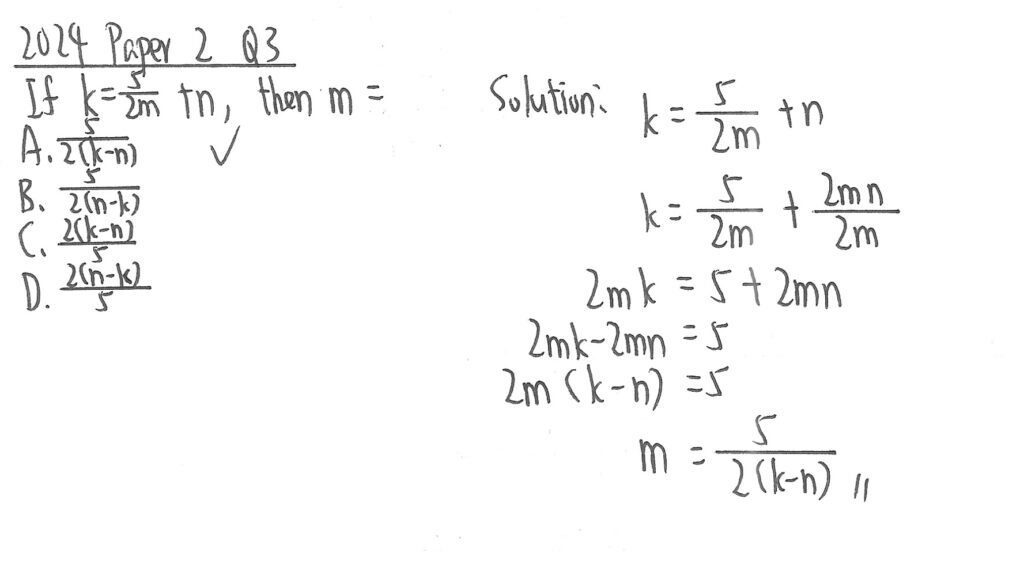 2024 Paper 2 Q3
If k = 5/2m + n, then m =
A. 5/2(k-n) ✓
B. 5/2(n-k)
C. 2(k-n)/5
D. 2(n-k)/5
Solution: k = 5/2m + n
k = 5/2m + 2mn/2m
2mk = 5 + 2mn
2mk-2mn = 5
2m (k-n) = 5
m = 5/2(k-n) //